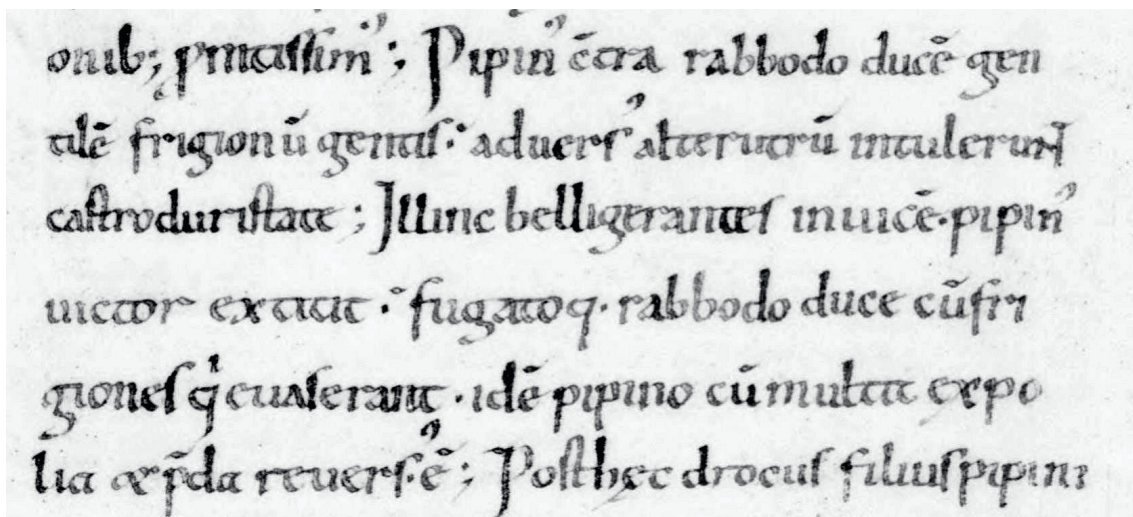 onib; p̄ntassim᾿; Pipin᾿ c̄tra rabbodo ducē gen
tilē frigionū gentis. aduers᾿ alterutrū intulerunt
castroduristate; Illinc belligerantes inuicē. pipin᾿
uictor extitit. fugatoq. rabbodo duce cū fri
giones qi euaserant. idē pipino cū multit expo
lia & p̄da reuers. ē; Posthęc drocus filius pipini